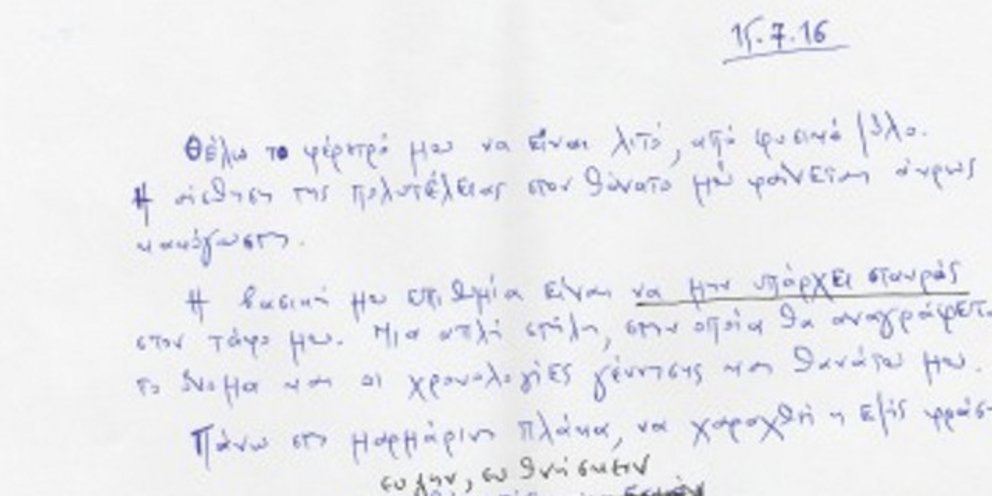 15.7.16
Θέλω το φέρετρό μου να είναι λιτό, από φυσικό ξύλο.
Η αίσθηση της πολυτέλειας στον θάνατο μού φαίνεται άκρως
κακόγουστη.
Η βασική μου επιθυμία είναι να μην υπάρχει σταυρός
στον τάφο μου. Μια απλή στήλη, στην οποία θα αναγράφετ
το όνομα και οι χρονολογίες γέννησης και θανάτου μου.
Πάνω στη μαρμάρινη πλάκα, να χαραχθή η εξής φράση